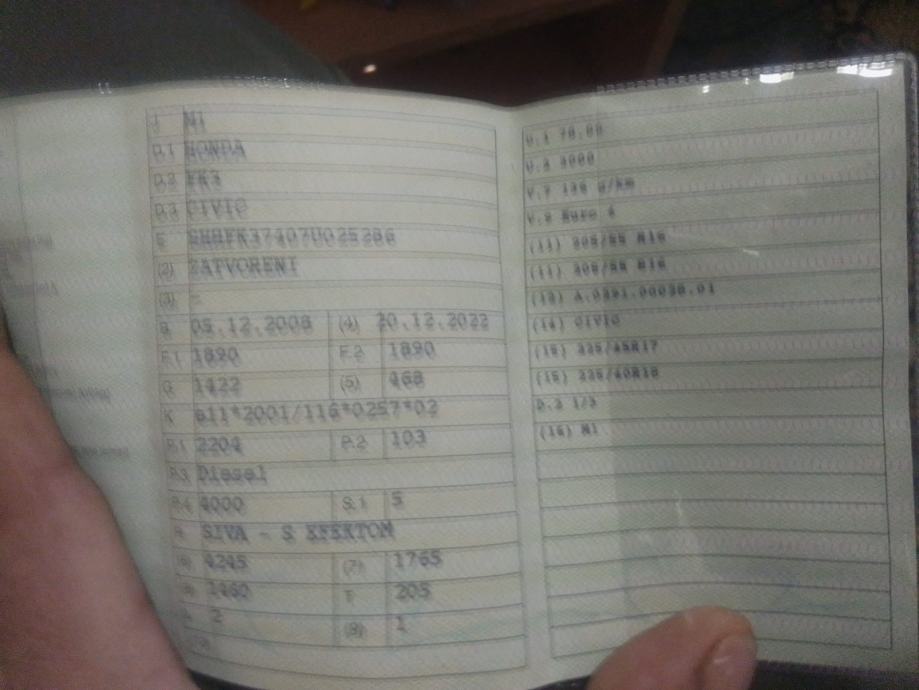 J M1
D.1 HONDA
D.2 FK3
D.3 CIVIC
E SHHFK37407U025286
(2) ZATVORENI
(3) -
B 05.12.2008 (4) 20.12.2022
F.1 1890 F.2 1890
G 1422 (5) 468
K e11*2001/116*0257*02
P.1 2204 P.2 103
P.3 Diesel
P.4 4000 S.1 5
R SIVA - S EFEKTOM
(6) 4245 (7) 1765
1460 T 205
2 (8) 1
U.1 78.00
U.2 3000
V.7 136 g/km
V.9 Euro 4
(11) 205/55 R16
(11) 205/55 R16
(14) CIVIC
(15) 225/45R17
(15) 225/40R18
D.2 1/3
(16) M1